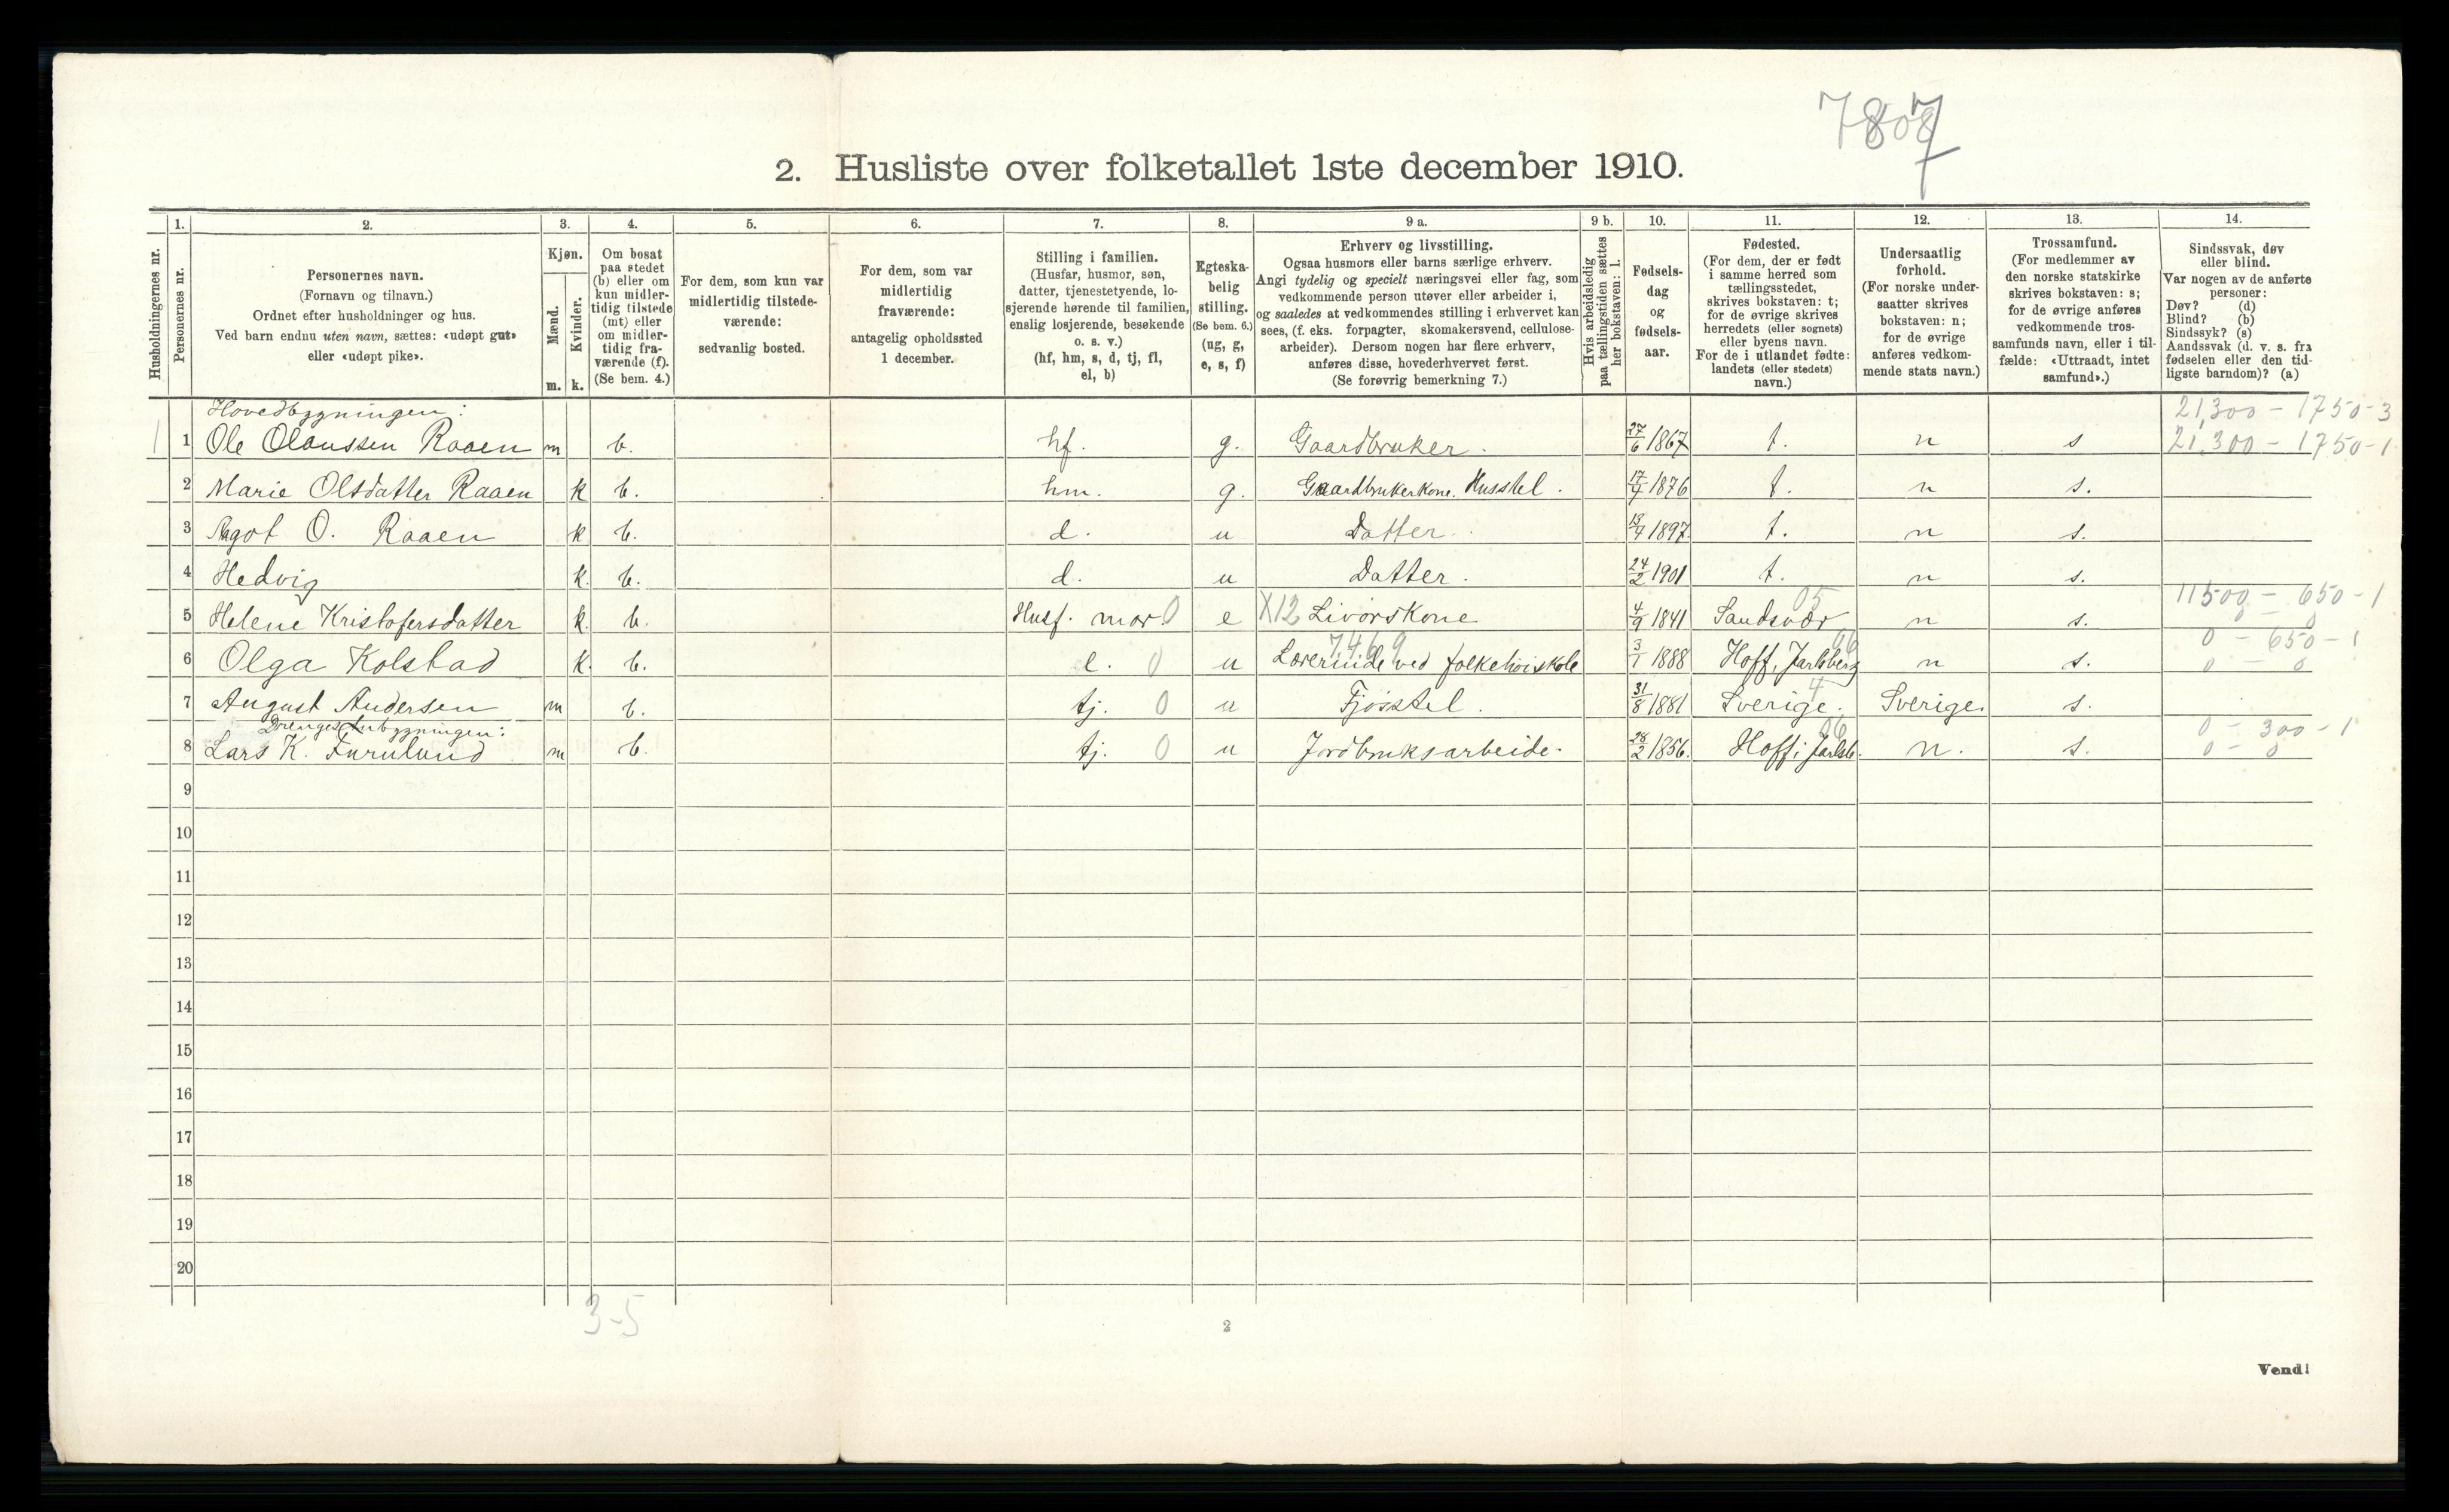 7807
2. Husliste over folketallet 1ste december 1910.
Husholdningernes nr.
1. Personernes nr.
2. Personernes navn.
(Fornavn og tilnavn.)
Ordnet efter husholdninger og hus.
Ved barn endnu uten navn, sættes: «udøpt gut»
eller «udøpt pike».
3. Kjøn.
Mænd. m.
Kvinder. k.
4. Om bosat
paa stedet
(b) eller om
kun midler-
tidig tilstede
(mt) eller
om midler-
tidig fra-
værende (f).
(Se bem. 4.)
5. For dem, som kun var
midlertidig tilstede-
værende:
sedvanlig bosted.
6. For dem, som var
midlertidig
fraværende:
antagelig opholdssted
1 december.
7. Stilling i familien.
(Husfar, husmor, søn,
datter, tjenestetyende, lo-
sjerende hørende til familien,
enslig losjerende, besøkende
o. s. v.)
(hf, hm, s, d, tj, fl,
el, b)
8. Egteska-
belig
stilling.
(Se bem. 6.)
(ug, g,
e, s, f)
9 a. Erhverv og livsstilling.
Ogsaa husmors eller barns særlige erhverv.
Angi tydelig og specielt næringsvei eller fag, som
vedkommende person utøver eller arbeider i,
og saaledes at vedkommendes stilling i erhvervet kan
sees, (f. eks. forpagter, skomakersvend, cellulose-
arbeider). Dersom nogen har flere erhverv,
anføres disse, hovederhvervet først.
(Se forøvrig bemerkning 7.)
9 b. Hvis arbeidsledig
paa tællingstiden sættes
her bokstaven: l.
10. Fødsels-
dag
og
fødsels-
aar.
11. Fødested.
(For dem, der er født
i samme herred som
tællingsstedet,
skrives bokstaven: t;
for de øvrige skrives
herredets (eller sognets)
eller byens navn.
For de i utlandet fødte:
landets (eller stedets)
navn.)
12. Undersaatlig
forhold.
(For norske under-
saatter skrives
bokstaven: n;
for de øvrige
anføres vedkom-
mende stats navn.)
13. Trossamfund.
(For medlemmer av
den norske statskirke
skrives bokstaven: s;
for de øvrige anføres
vedkommende tros-
samfunds navn, eller i til-
fælde: «Uttraadt, intet
samfund».)
14. Sindssvak, døv
eller blind.
Var nogen av de anførte
personer:
Døv? (d)
Blind? (b)
Sindssyk? (s)
Aandssvak (d. v. s. fra
fødselen eller den tid-
ligste barndom)? (a)
Hovedbygningen: 21,300 - 1750-3
1 1 Ole Olaussen Raaen m b. hf. g. Gaardbruker. 27/6 1867 t. n s 21,300 - 1750-1
2 Marie Olsdatter Raaen k b. hm. g. Gaardbrukerkone. Husstel. 17/7 1876 t. n s.
3 Aagot O. Raaen k b. d. u Datter. 1897 t. n s.
4 Hedvig k. b. d. u Datter. 24/2 1901 t. n s.
05 11500 - 650-1
5 Helene Kristofersdatter k. b. Husf. mor. 0 e X12 Livørskone 4/9 1841 Sandsvær n s. 0 0
7469 06 0 - 650-1
6 Olga Kolstad k. b. l. 0 u Lærerinde ved folkehøiskole 3/1 1888 Hoff, Jarlsberg n s. 0 - 0
4
7 August Andersen m b. tj. 0 u Fjøsstel. 31/8 1881 Sverige. Sverige. s.
Drengestubygningen: 06 0 - 300-1
8 Lars K. Furulund m b. tj. 0 u Jordbruksarbeide. 28/2 1856. Hoff i Jarlsb. n. s. 0 - 0
9
10
11
12
13
14
15
16
17
18
19
20
3-5
2
Vend!